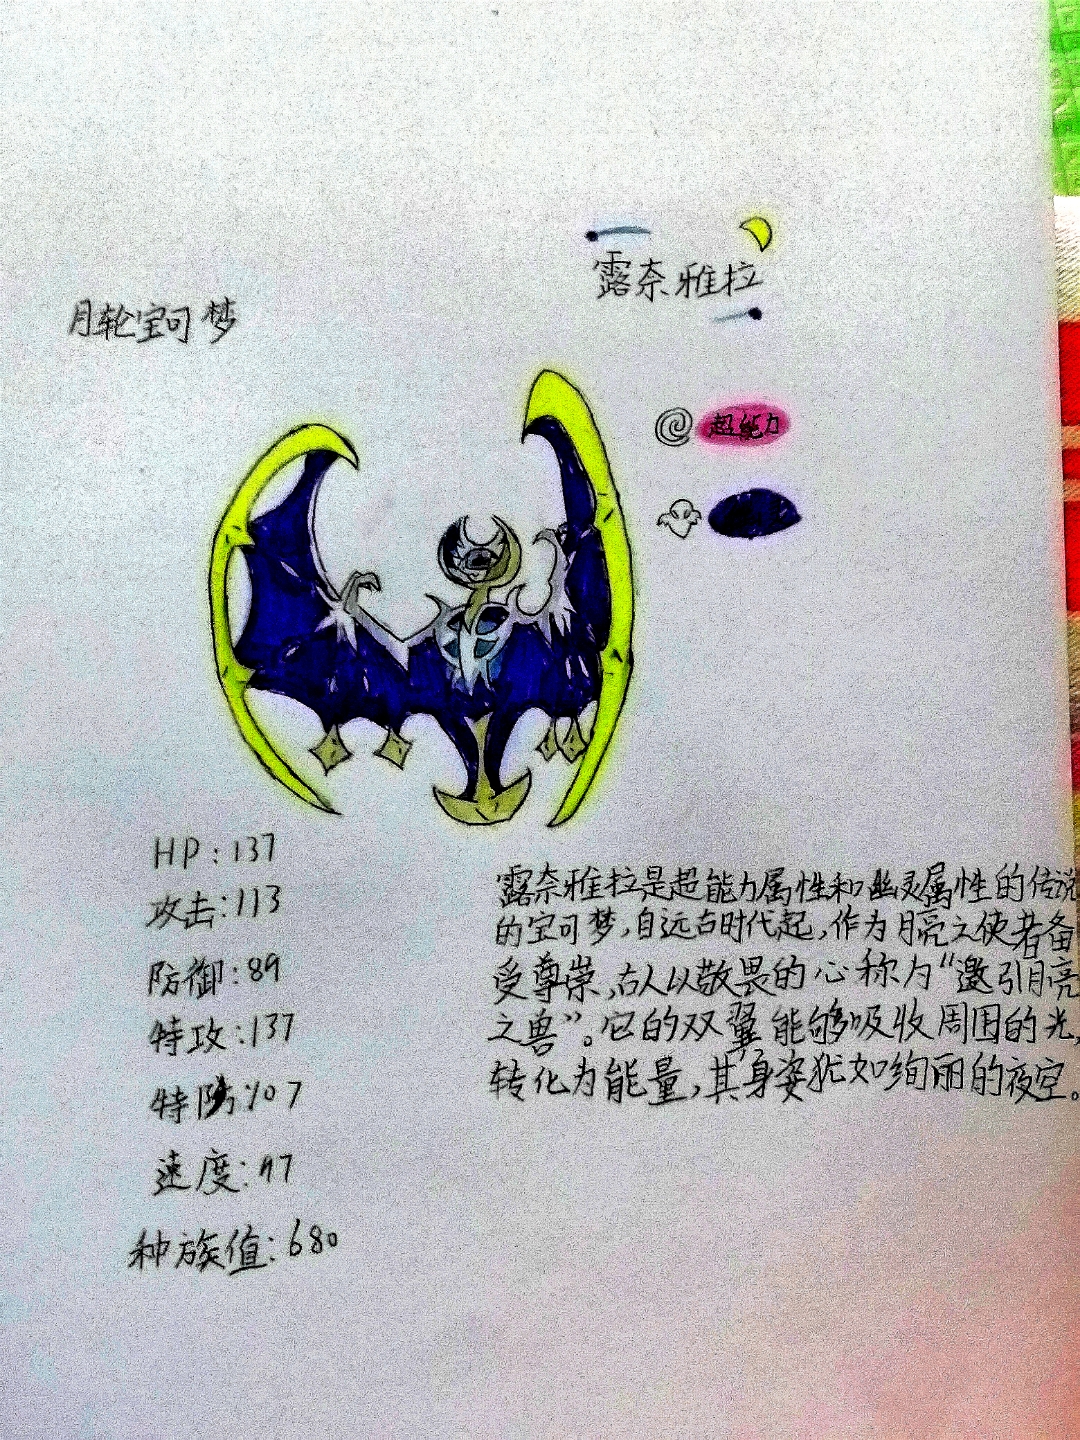 露奈雅拉
月轮宝可梦
超能力
HP:137
攻击:113
防御:89
特攻:137
特防:107
速度:97
种族值:680
露奈雅拉是超能力属性和幽灵属性的传说
的宝可梦,自远古时代起,作为月亮之使者备
受尊荣,古人以敬畏的心称为“邀引月亮
之兽”。它的双翼能够吸收周围的光,
转化为能量,其身姿犹如绚丽的夜空。